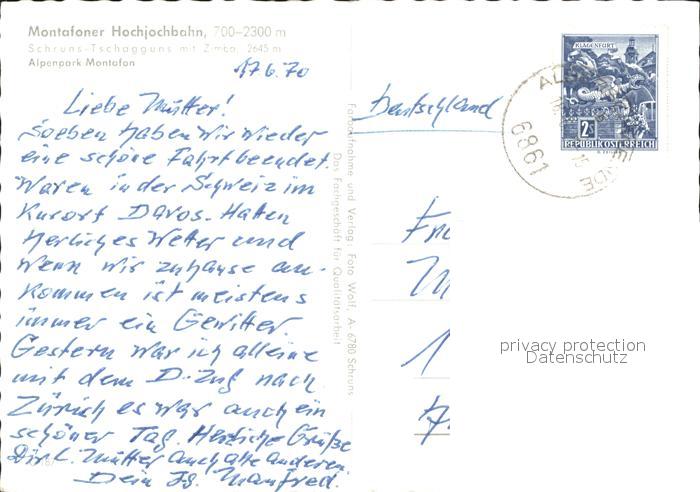 Montafoner Hochjochbahn, 700–2300 m
Schruns-Tschagguns mit Zimba, 2645 m
Alpenpark Montafon
17.6.70
Liebe Mutter!
Soeben haben wir wieder
eine schöne Fahrt beendet.
Waren in der Schweiz im
Kurort Davos. Haten
herliches Wetter und
wenn wir zuhause an-
kommen ist meistens
immer ein Gewitter.
Gestern war ich alleine
mit dem D-Zug nach
Zürich es war auch ein
schöner Tag. Herzliche Grüße
Dir l. Mutter auch alle anderen.
Dein Manfred.
Fotoaufnahme und Verlag: Foto Wolf, A-6780 Schruns
Das Fachgeschäft für Qualitätsarbeit
Deutschland
KLAGENFURT
2S
REPUBLIK ÖSTERREICH
6861
privacy protection
Datenschutz